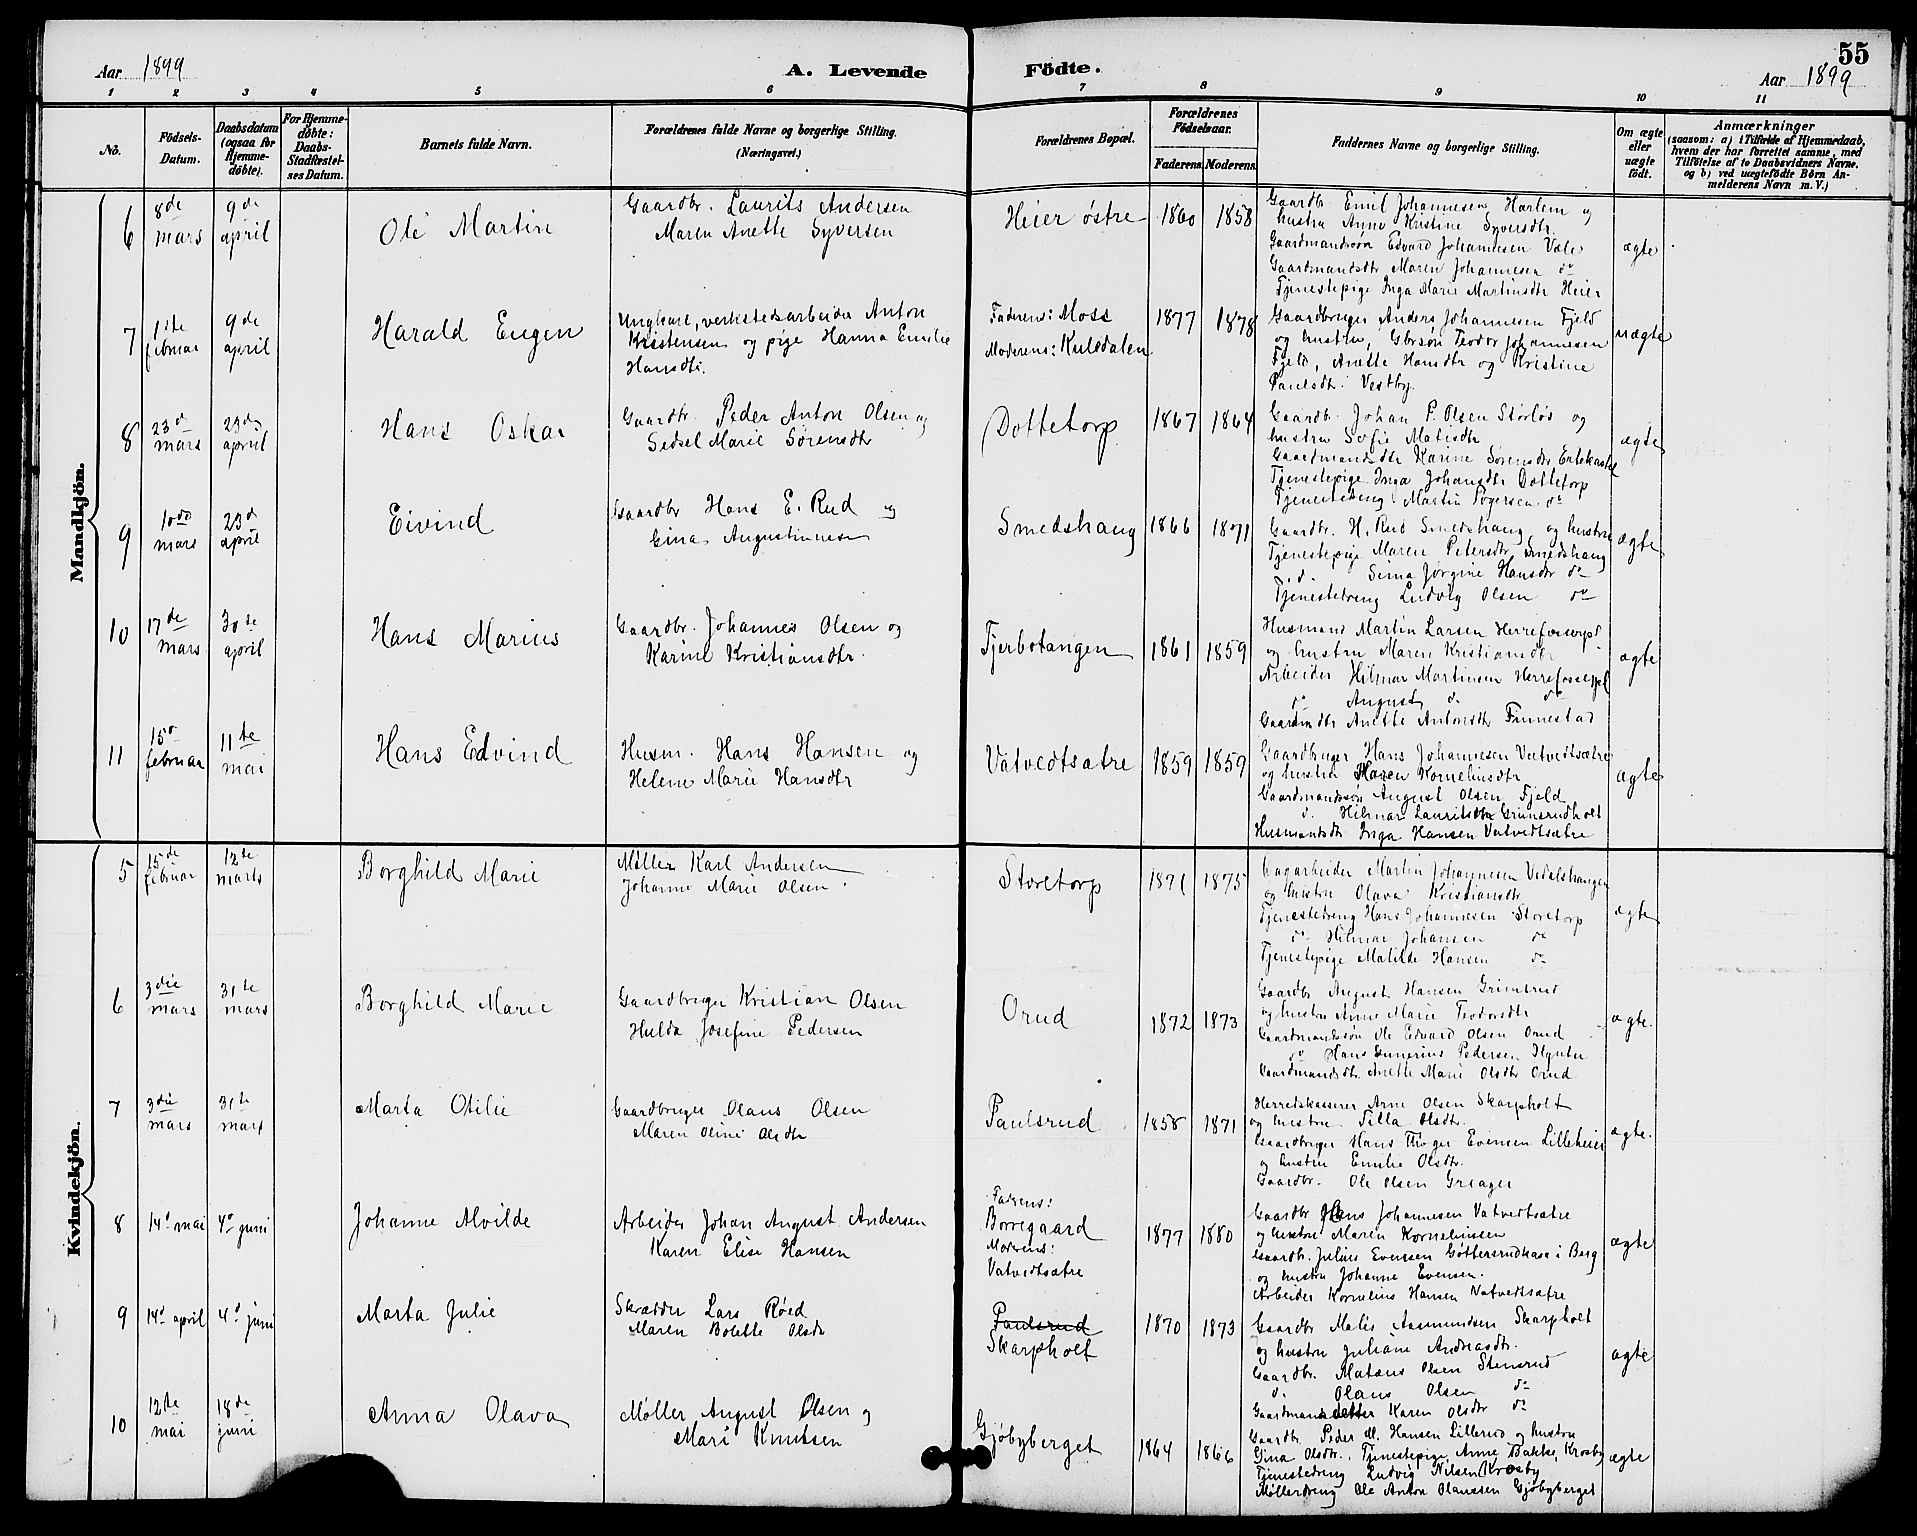 55
Aar 1899
A. Levende Födte.
Aar 1899
1 2 3 4 5 6 7 8 9 10 11
No.
Födsels-Datum.
Daabsdatum (ogsaa for Hjemmedöbte).
For Hjemmedöbte: Daabs-Stadfæstelses Datum.
Barnets fulde Navn.
Forældrenes fulde Navne og borgerlige Stilling.
(Næringsvei.)
Forældrenes Bopæl.
Forældrenes Födselsaar.
Faderens. Moderens.
Faddernes Navne og borgerlige Stilling.
Om ægte eller uægte födt.
Anmærkninger
(saasom: a) i Tilfælde af Hjemmedaab, hvem der har forrettet samme, med Tilföielse af to Daabsvidners Navne. og b) ved uægtefödte Börn Anmelderens Navn m. V.)
Mandkjön.
6
8de mars
9de april
Ole Martin
Gaardbr. Laurits Andersen
Maren Anette Syversen
Heier østre
1860 1858
Gaardbr. Emil Johannesen Harlem og
hustru Anne Kristine Syversdtr.
Gaardmandssøn Edvard Johannesen Vale
Gaardmandsdtr Maren Johannesen do
Tjenestepige Inga Marie Martinsdtr Heier
ægte
7
1ste februar
9de april
Harald Eugen
Ungkarl, verkstedsarbeider Anton
Kristensen og pige Hanna Emilie
Hansdtr.
Faderens: Moss
Moderens: Kulsdalen
1877 1878
Gaardbruger Anders Johannesen Fjeld
og hustru, Gbrsøn Teodor Johannesen
Fjeld, Anette Hansdtr og Kristine
Paulsdtr. Vestby.
uægte
8
23d mars
23d april
Hans Oskar
Gaardbr. Peder Anton Olsen og
Sedsel Marie Sørensdtr
Dottetorp
1867 1864
Gaardbr. Johan P. Olsen Størløs og
hustru Sofie Matisdtr
Gaardmandsdtr Karine Sørensdtr
Tjenestepige Inga Johansdtr Dottetorp
Tjenestedreng Martin do
ægte
9
10de mars
23d april
Eivind
Gaardbr Hans E. Rud og
Gina Augustinusen
Smedshaug
1866 1871
Gaardbr. H. Rud Smedshaug, og hustru
Tjenestepige Maren Petersdtr Smedshaug
d. Sina Jørgine Hansdtr do
Tjenestedreng Ludvig Olsen do
ægte
10
17de mars
30te april
Hans Marius
Gaardbr. Johannes Olsen og
Karine Kristiansdtr.
Tjerbotangen
1861 1859
Husmand Martin Larsen
og hustru Maren Kristiansdtr
Arbeider Hilmar Martinsen
do August d. do
Gaardmdtr Anette Antonsdtr Finnestad
ægte
11
15d februar
11te mai
Hans Edvind
Husm. Hans Hansen og
Helene Marie Hansdtr
Vatvedtsætre
1859 1859
Gaardbruger Hans Johannesen Vatvedtsætre
og hustru Maren Kornelinsdtr
Gaardmandssøn August Olsen Fjeld
d. Hilmar Grimsrudholt
Husmandsdtr Inga Hansen Vatvedtsætre
ægte
Kvindekjön.
5
15de februar
12te marts
Borghild Marie
Møller Karl Andersen
Johanne Marie Olsen.
Storetorp
1871 1875
Martin Johannesen
og hustru Olava Kristiansdtr
Tjenestedreng Hans Johannesen Storetorp
d. Hilmar Johansen do
Tjenestepige Matilde Hansen do
ægte
6
3die mars
31te mars
Borghild Marie
Gaardbruger Kristian Olsen
Hulda Josefine Pedersen
Orud
1872 1873
Gaardbr August Hansen Grimsrud
og hustru Anne Marie Teodorsdtr
Gaardmandssøn Ole Edvard Olsen Orud
do Hans Pedersen
Gaardmandsdtr. Anette Marie Olsdtr Orud
ægte.
7
3die mars
31te mars
Marta Otilie
Gaardbruger Olaus Olsen
Maren Oline Olsdtr
Paulsrud
1858 1871
Herredskasserer Arne Olsen Skarpholt
og hustru Tilla Olsdtr.
Gaardbruger Hans Thøger Evensen Lilleheier
og hustru Emilie Olsdtr.
Gaardbr. Ole Olsen Greager
ægte.
8
14d mai
4d juni
Johanne Alvilde
Arbeider Johan August Andersen
Karen Elise Hansen
Faderens:
Borregaard
Moderens:
Vatvedtsætre
1877 1880
Gaardbr Hans Johannesen Vatvedtsætre
og hustru Maren Kornelinssen
Gaardbr. Julius Evensen Gøttersrudkasa i Berg
og hustru Johanne Evensen.
Arbeider Kornelius Hansen Vatvedtsætre
ægte
9
14d april
4d juni
Marta Julie
Skrædder Lars Røed
Maren Bolette Olsdr
Paulsrud
Skarpholt
1870 1873
Gaardbr Matis Aasmundsen Skarpholt
og hustru Juliane Andreasdtr.
Gaardbr. Mataus Olsen Stensrud
d. Olaus Olsen do
Gaardmandsdatter Karen Olsdtr do
ægte
10
12te mai
18de juni
Anna Olava
Møller August Olsen og
Mari Knutsen
Gjøbyberget
1864 1866
Gaardbr Peder M. Hansen Lillerud og hustru
Gina Olsdtr., Tjenestepige Anne Bakke, Krosby
Tjenestedreng Ludvig Nilsen Krosby
Møllerdreng Ole Anton Olaussen Gjøbyberget
ægte